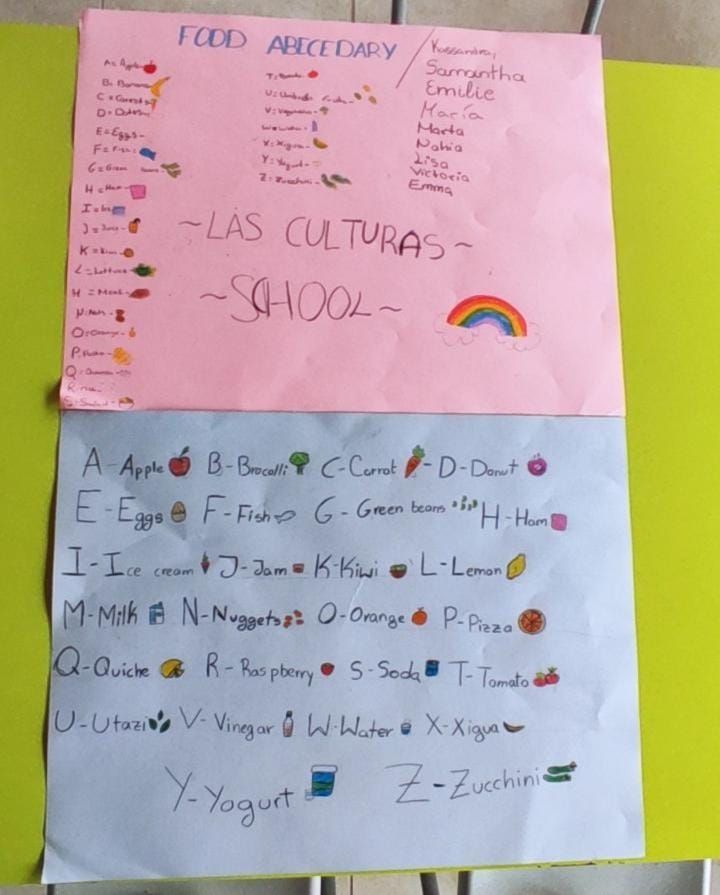 FOOD ABECEDARY
Kassandra,
Samantha
Emilie
María
Marta
Nahia
Lisa
Victoria
Emma
A = Apple
B = Banana
C = Carrot
E = Eggs
F = Fish
G = Green beans
H = Ham
I = Ice
J = Juice
K = Kiwi
L = Lettuce
M = Meat
N = Nuts
O = Orange
P =
Q =
R =
S = Salad
T =
U =
V =
W = Water
X = Xigua
Y = Yogurt
Z = Zucchini
~LAS CULTURAS~
~SCHOOL~
A - Apple B - Brocolli C - Carrot - D - Donut
E - Eggs F - Fish G - Green beans H - Ham
I - Ice cream J - Jam K - Kiwi L - Lemon
M - Milk N - Nuggets O - Orange P - Pizza
Q - Quiche R - Raspberry S - Soda T - Tomato
U - Utazi V - Vinegar W - Water X - Xigua
Y - Yogurt Z - Zucchini